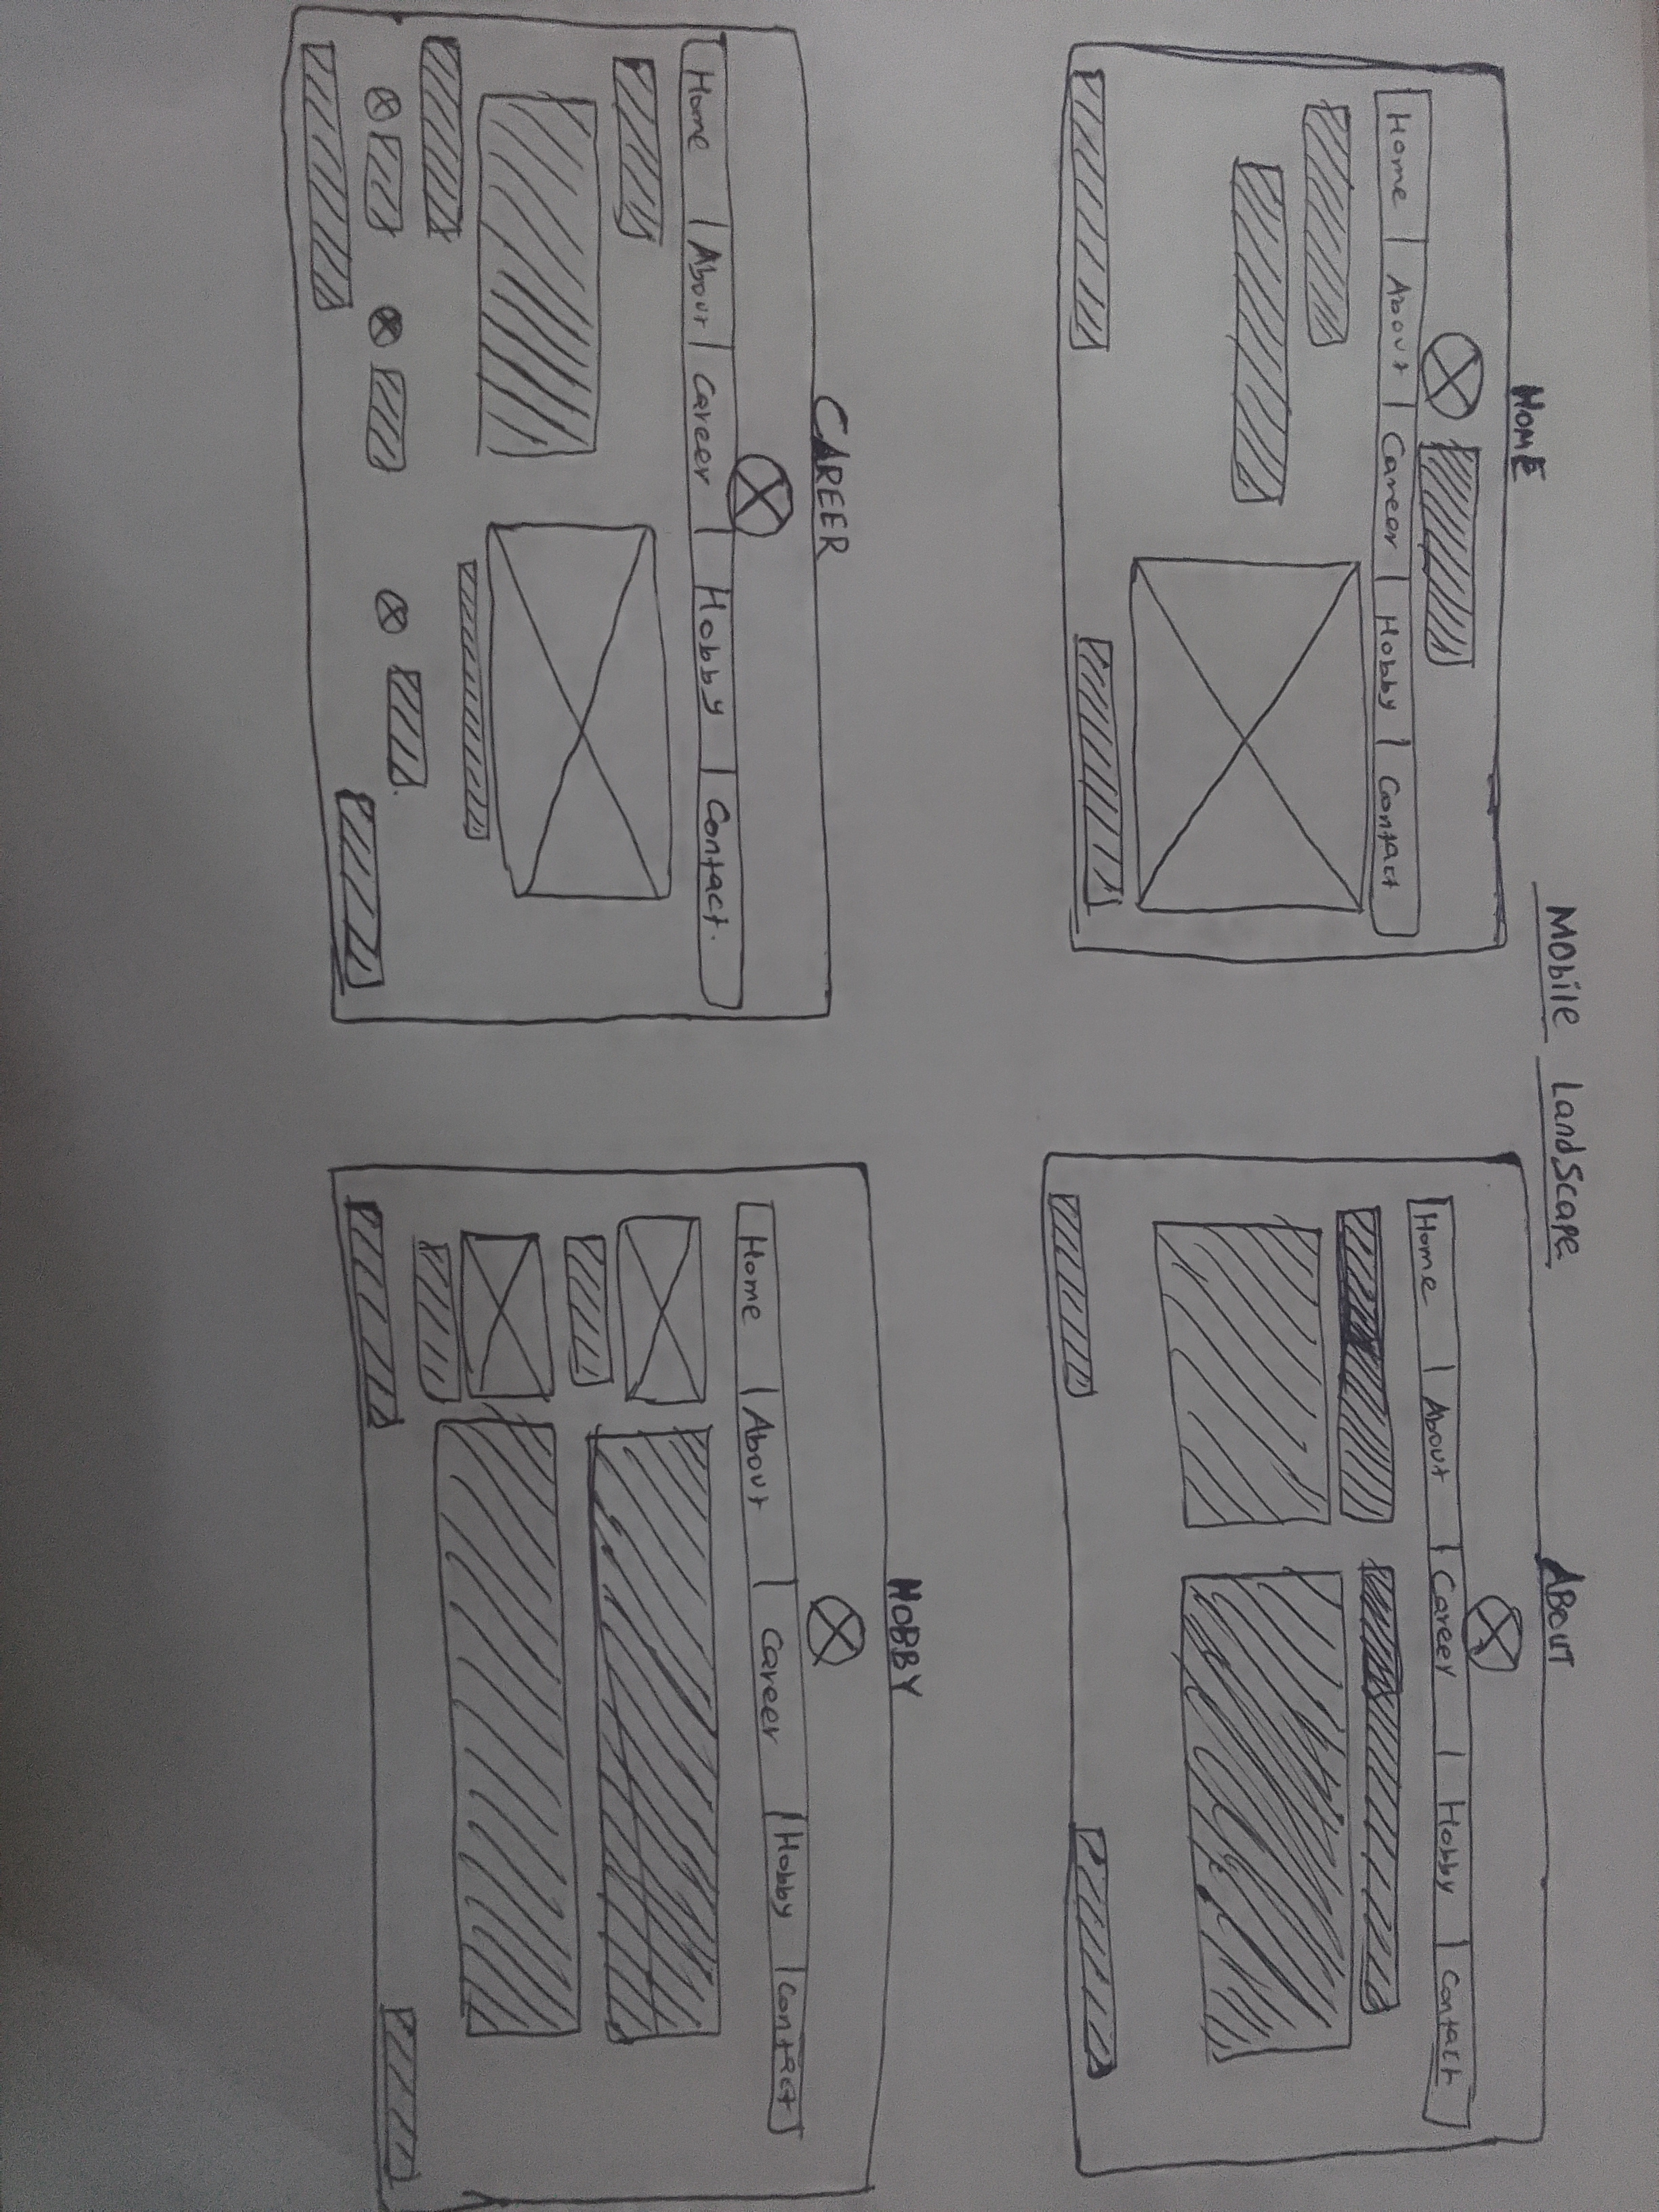 Mobile LandScape
HOME
Home About Career Hobby Contact
ABOUT
Home About Career Hobby Contact
CAREER
Home About Career Hobby Contact.
HOBBY
Home About Career Hobby Contact